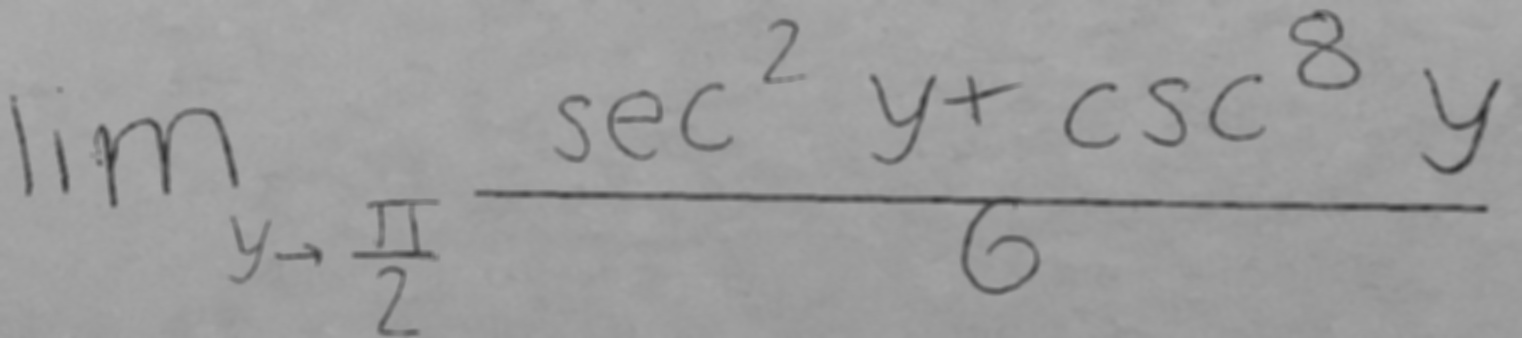 \lim_{y \to \frac{\pi}{2}} \frac{\sec^2 y + \csc^8 y}{6}